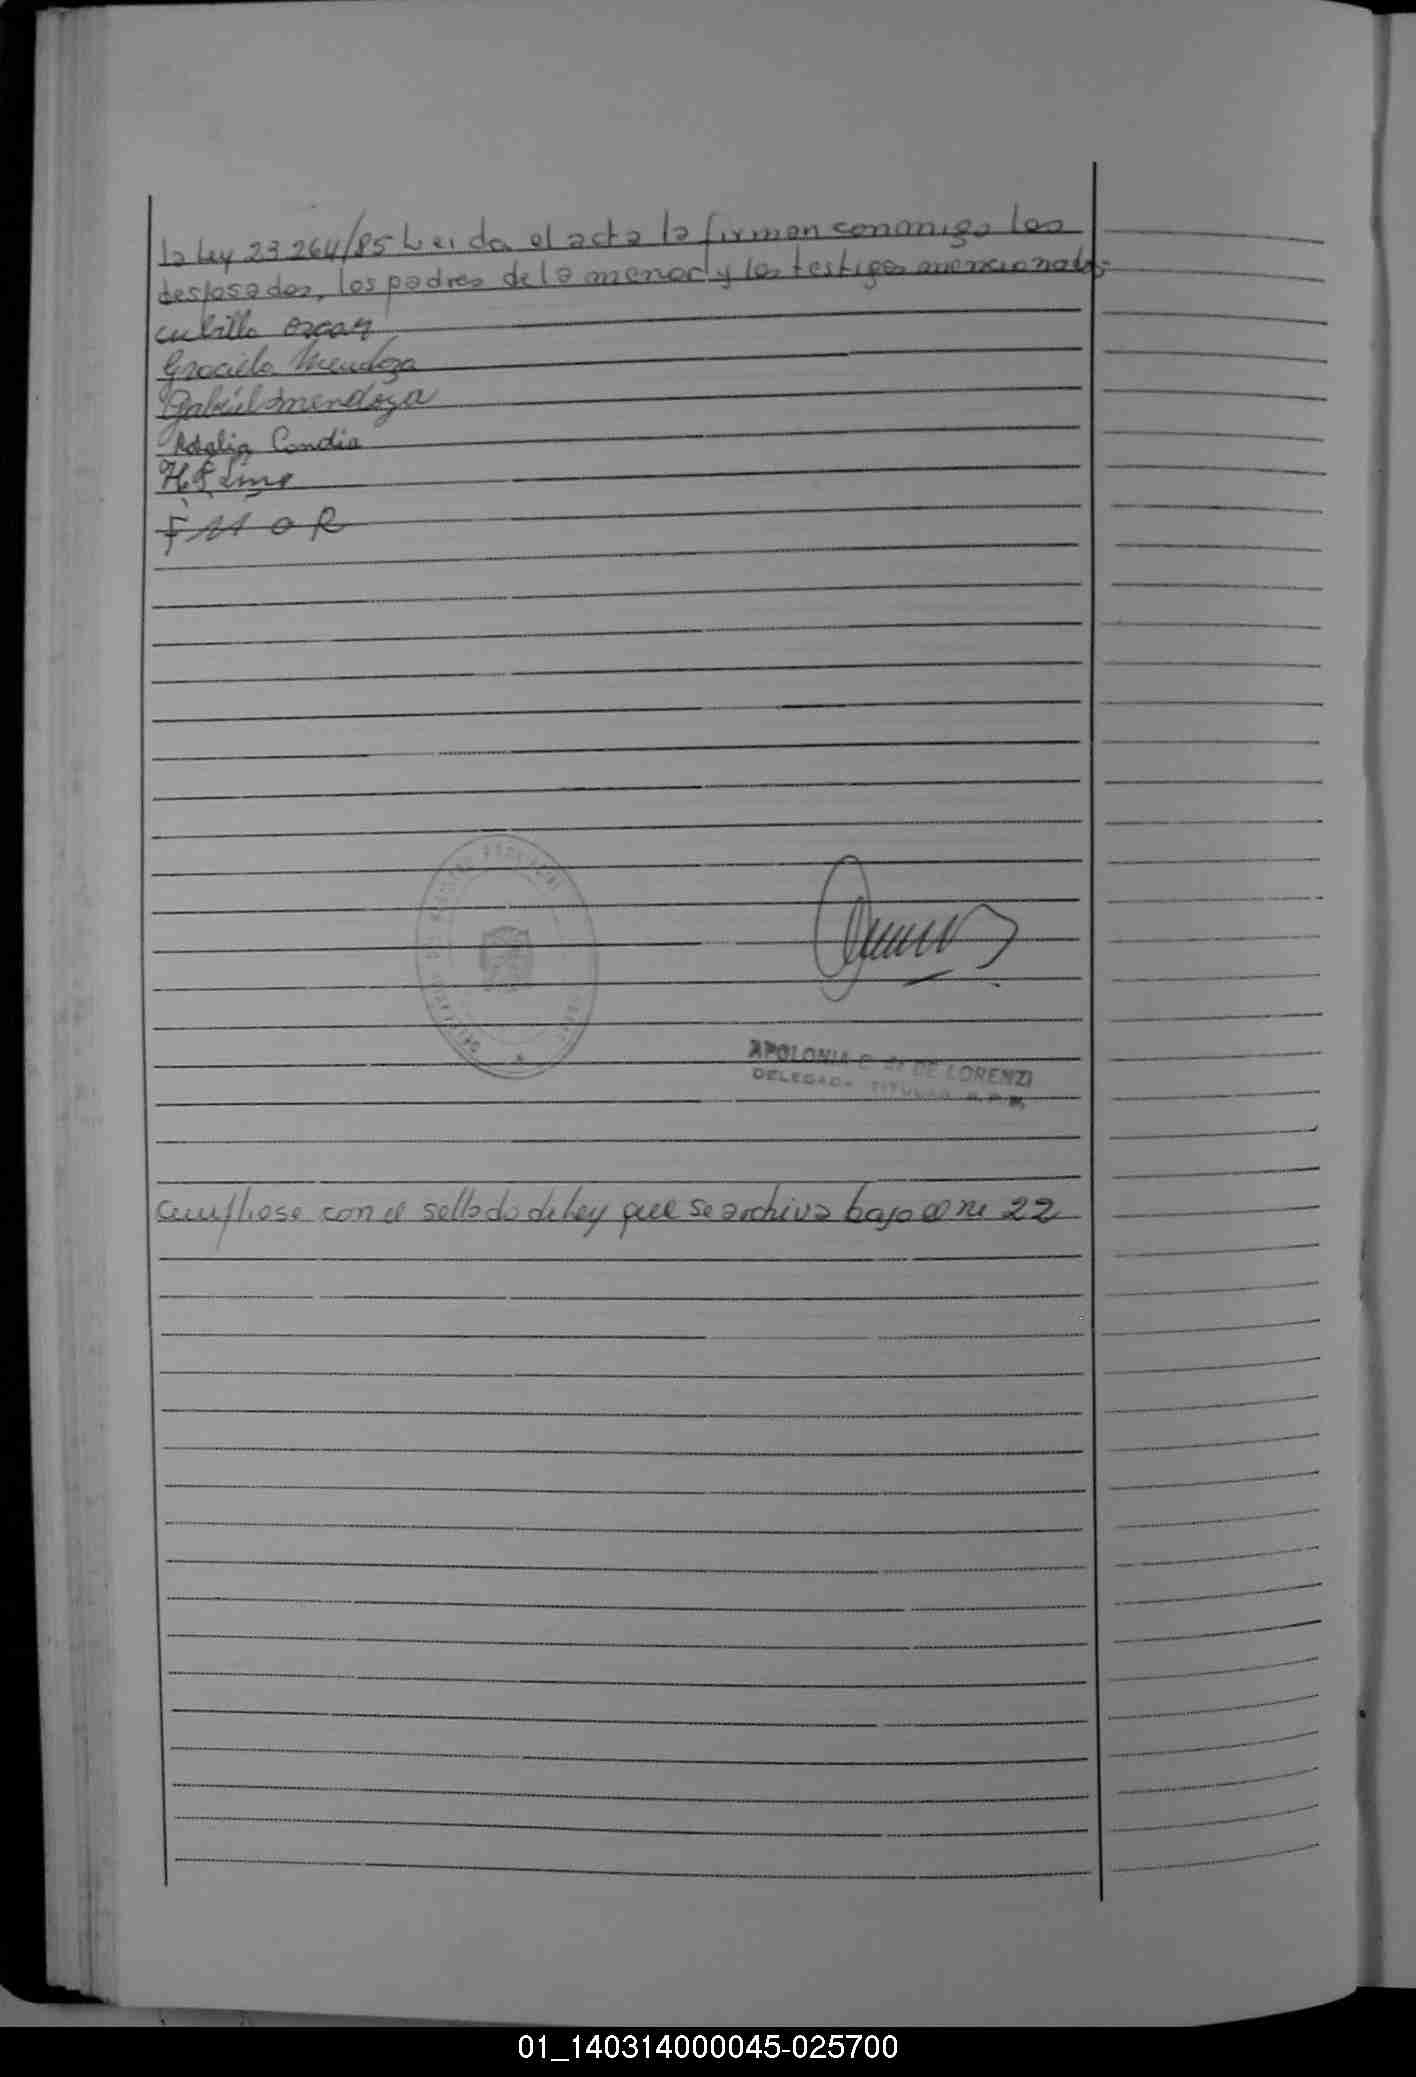 la ley 23264/85 Leida el acta la firman conmigo los
desposados, los padres de la menor y los testigos mencionados
cubillo oscar
Graciela Mendoza
Gabriel Mendoza
Adalia Condia
F M O R
APOLONIA DE LORENZI
DELEGADA TITULAR
Cumpliose con el sellado de Ley que se archiva bajo el nº 22
01_140314000045-025700